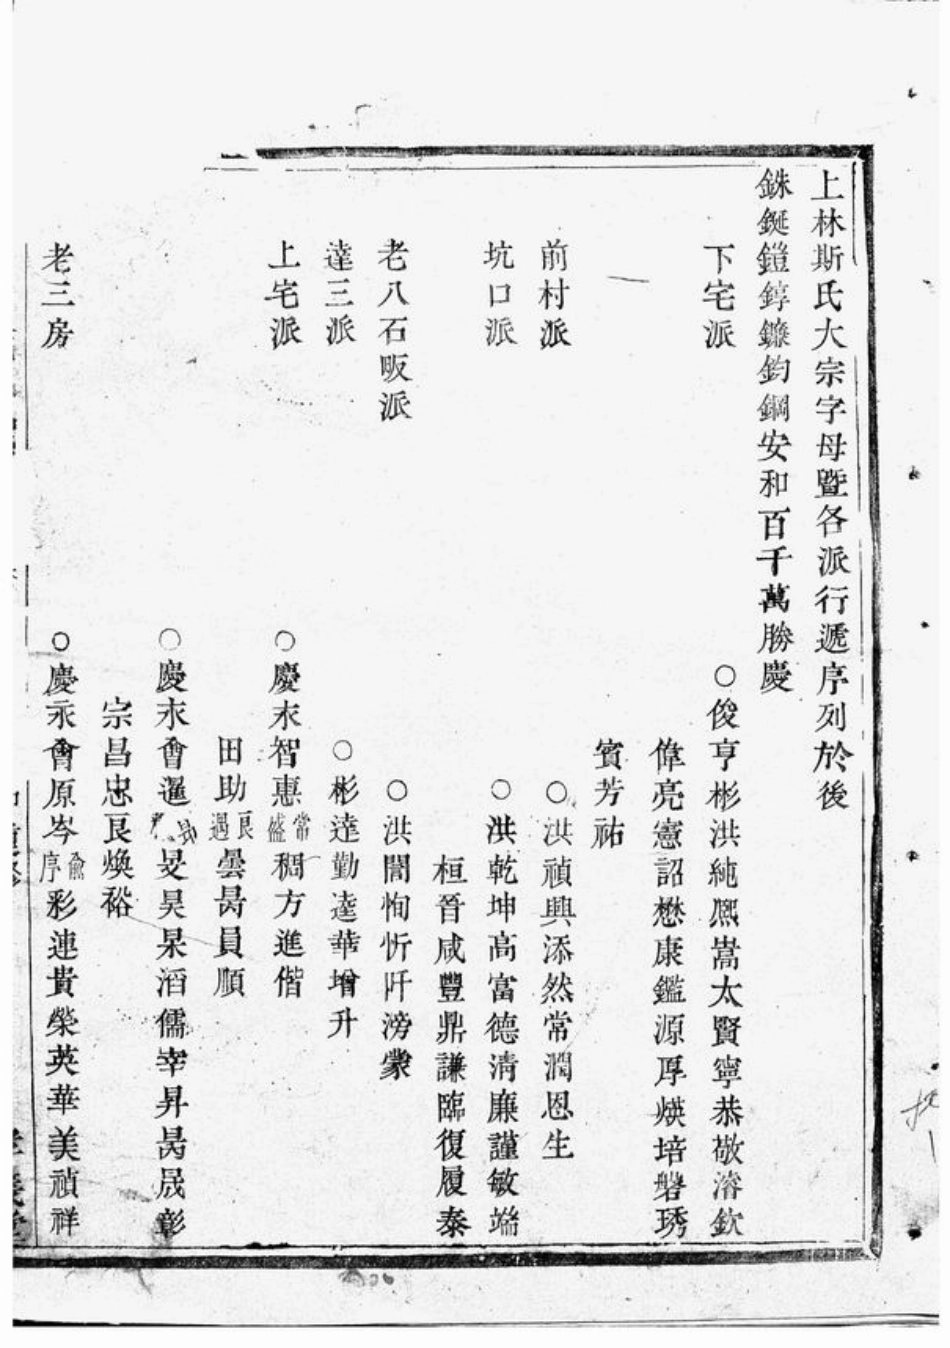 上林斯氏大宗字母暨各派行遞序列於後
銖鋌鎧錞鐮鈞鋼安和百千萬勝慶
下宅派 ○俊亨彬洪純熈嵩太賢寧恭敬濬欽
偉亮憲詔懋康鑑源厚煐培磐琇
賓芳祐
前村派 ○洪禎興添然常潤恩生
坑口派 ○洪乾坤高富德淸廉謹敏端
桓晉咸豐鼎謙臨復履泰
老八石畈派 ○洪誾恂忻旰滂蒙
達三派 ○彬達勤逵華增升
上宅派 ○慶永智惠常盛稠方進偕
田助良遇曇昺員順
○慶永會暹旻昊杲滔儒宰昇昺晟彰
宗昌忠良煥裕
老三房 ○慶永會原岑俞序彩連貴榮英華美禎祥